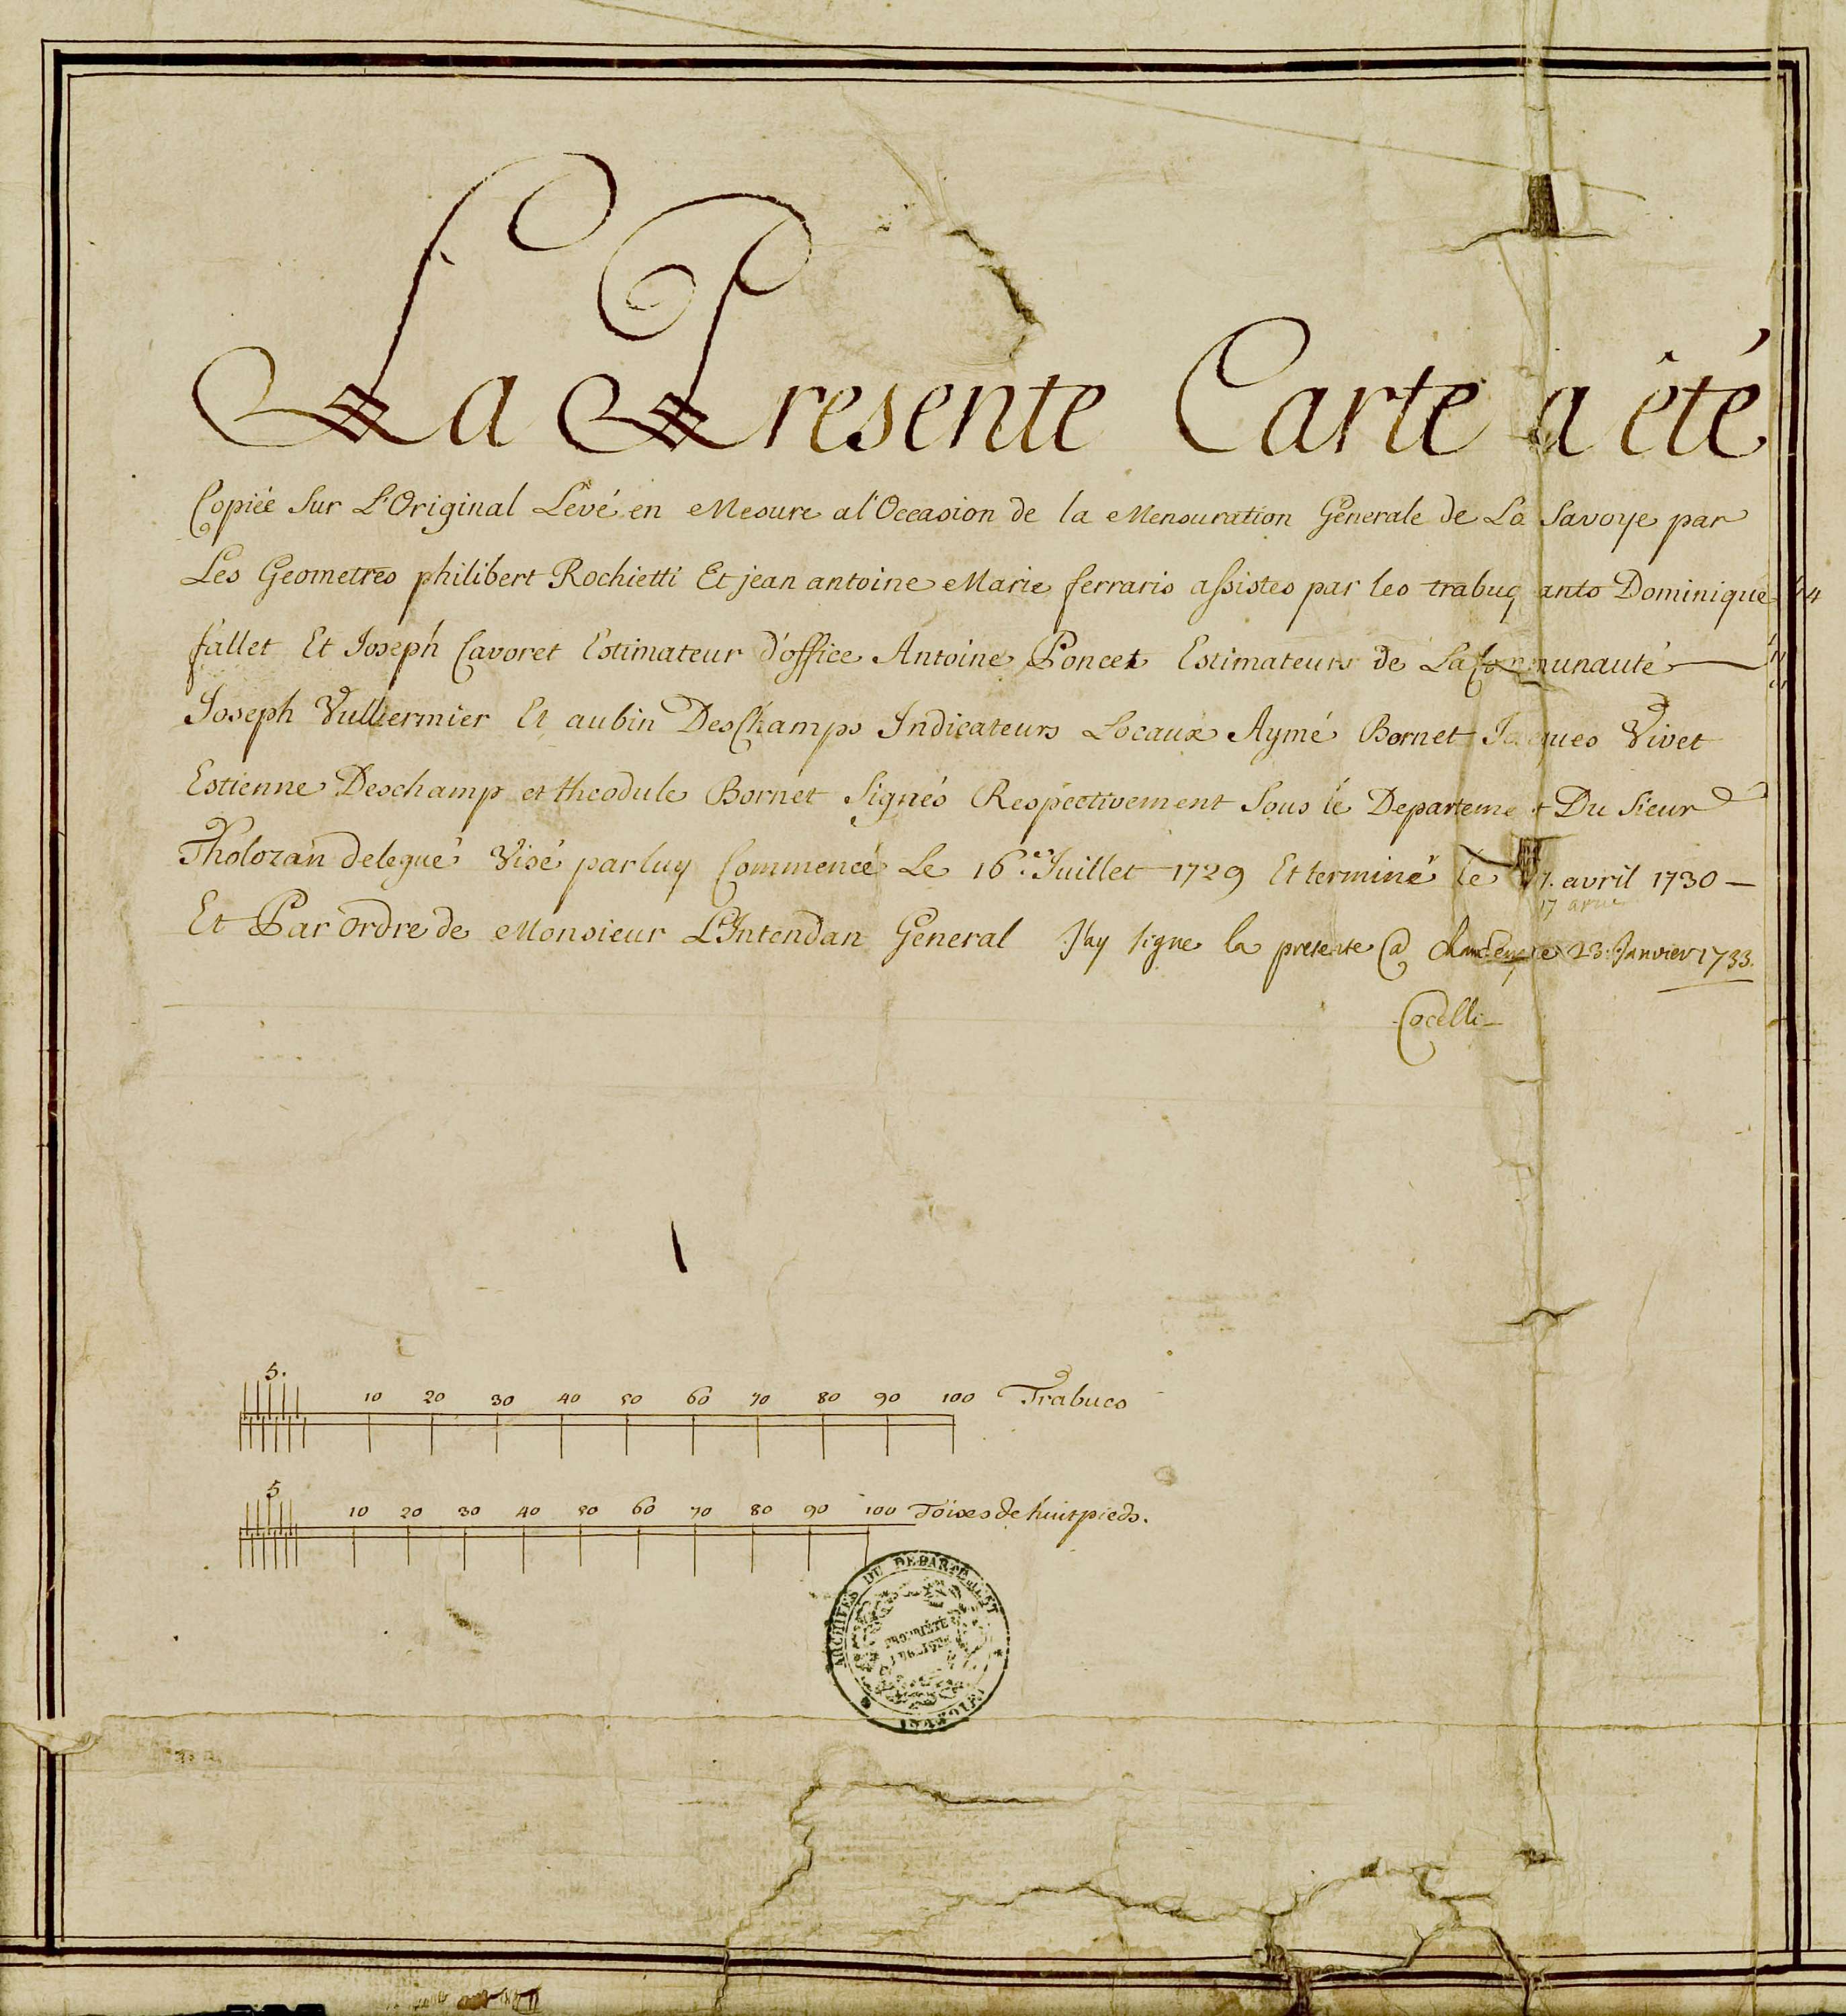 La Presente Carte a êté
Copiée Sur L'Original Levé en Mesure al'Occasion de la Mensuration Generale de La Savoye par
Les Geometres philibert Rochietti Et jean antoine Marie ferraris assistes par les trabuq ants Dominique
fallet Et Joseph Cavoret Estimateur d'office Antoine Poncet Estimateurs de La Communauté
Joseph Vulliermier Et aubin DesChamps Indicateurs Locaux Aymé Bornet Jacques Vivet
Estienne Deschamp et theodule Bornet Signés Respectivement Sous le Departeme t Du Sieur
Tholozan delegué Visé par luy Commencé Le 16.e Juillet 1729 Et terminé le 17. avril 1730
17 avril
Et Par Ordre de Monsieur L'Intendan General J'ay signe la presente a 23. Janvier 1733.
Cocelli
5.
10 20 30 40 50 60 70 80 90 100 Trabucs
5
10 20 30 40 50 60 70 80 90 100 Toises de huit pieds.
ARCHIVES DU DEPARTEMENT
PROPRIÉTÉ